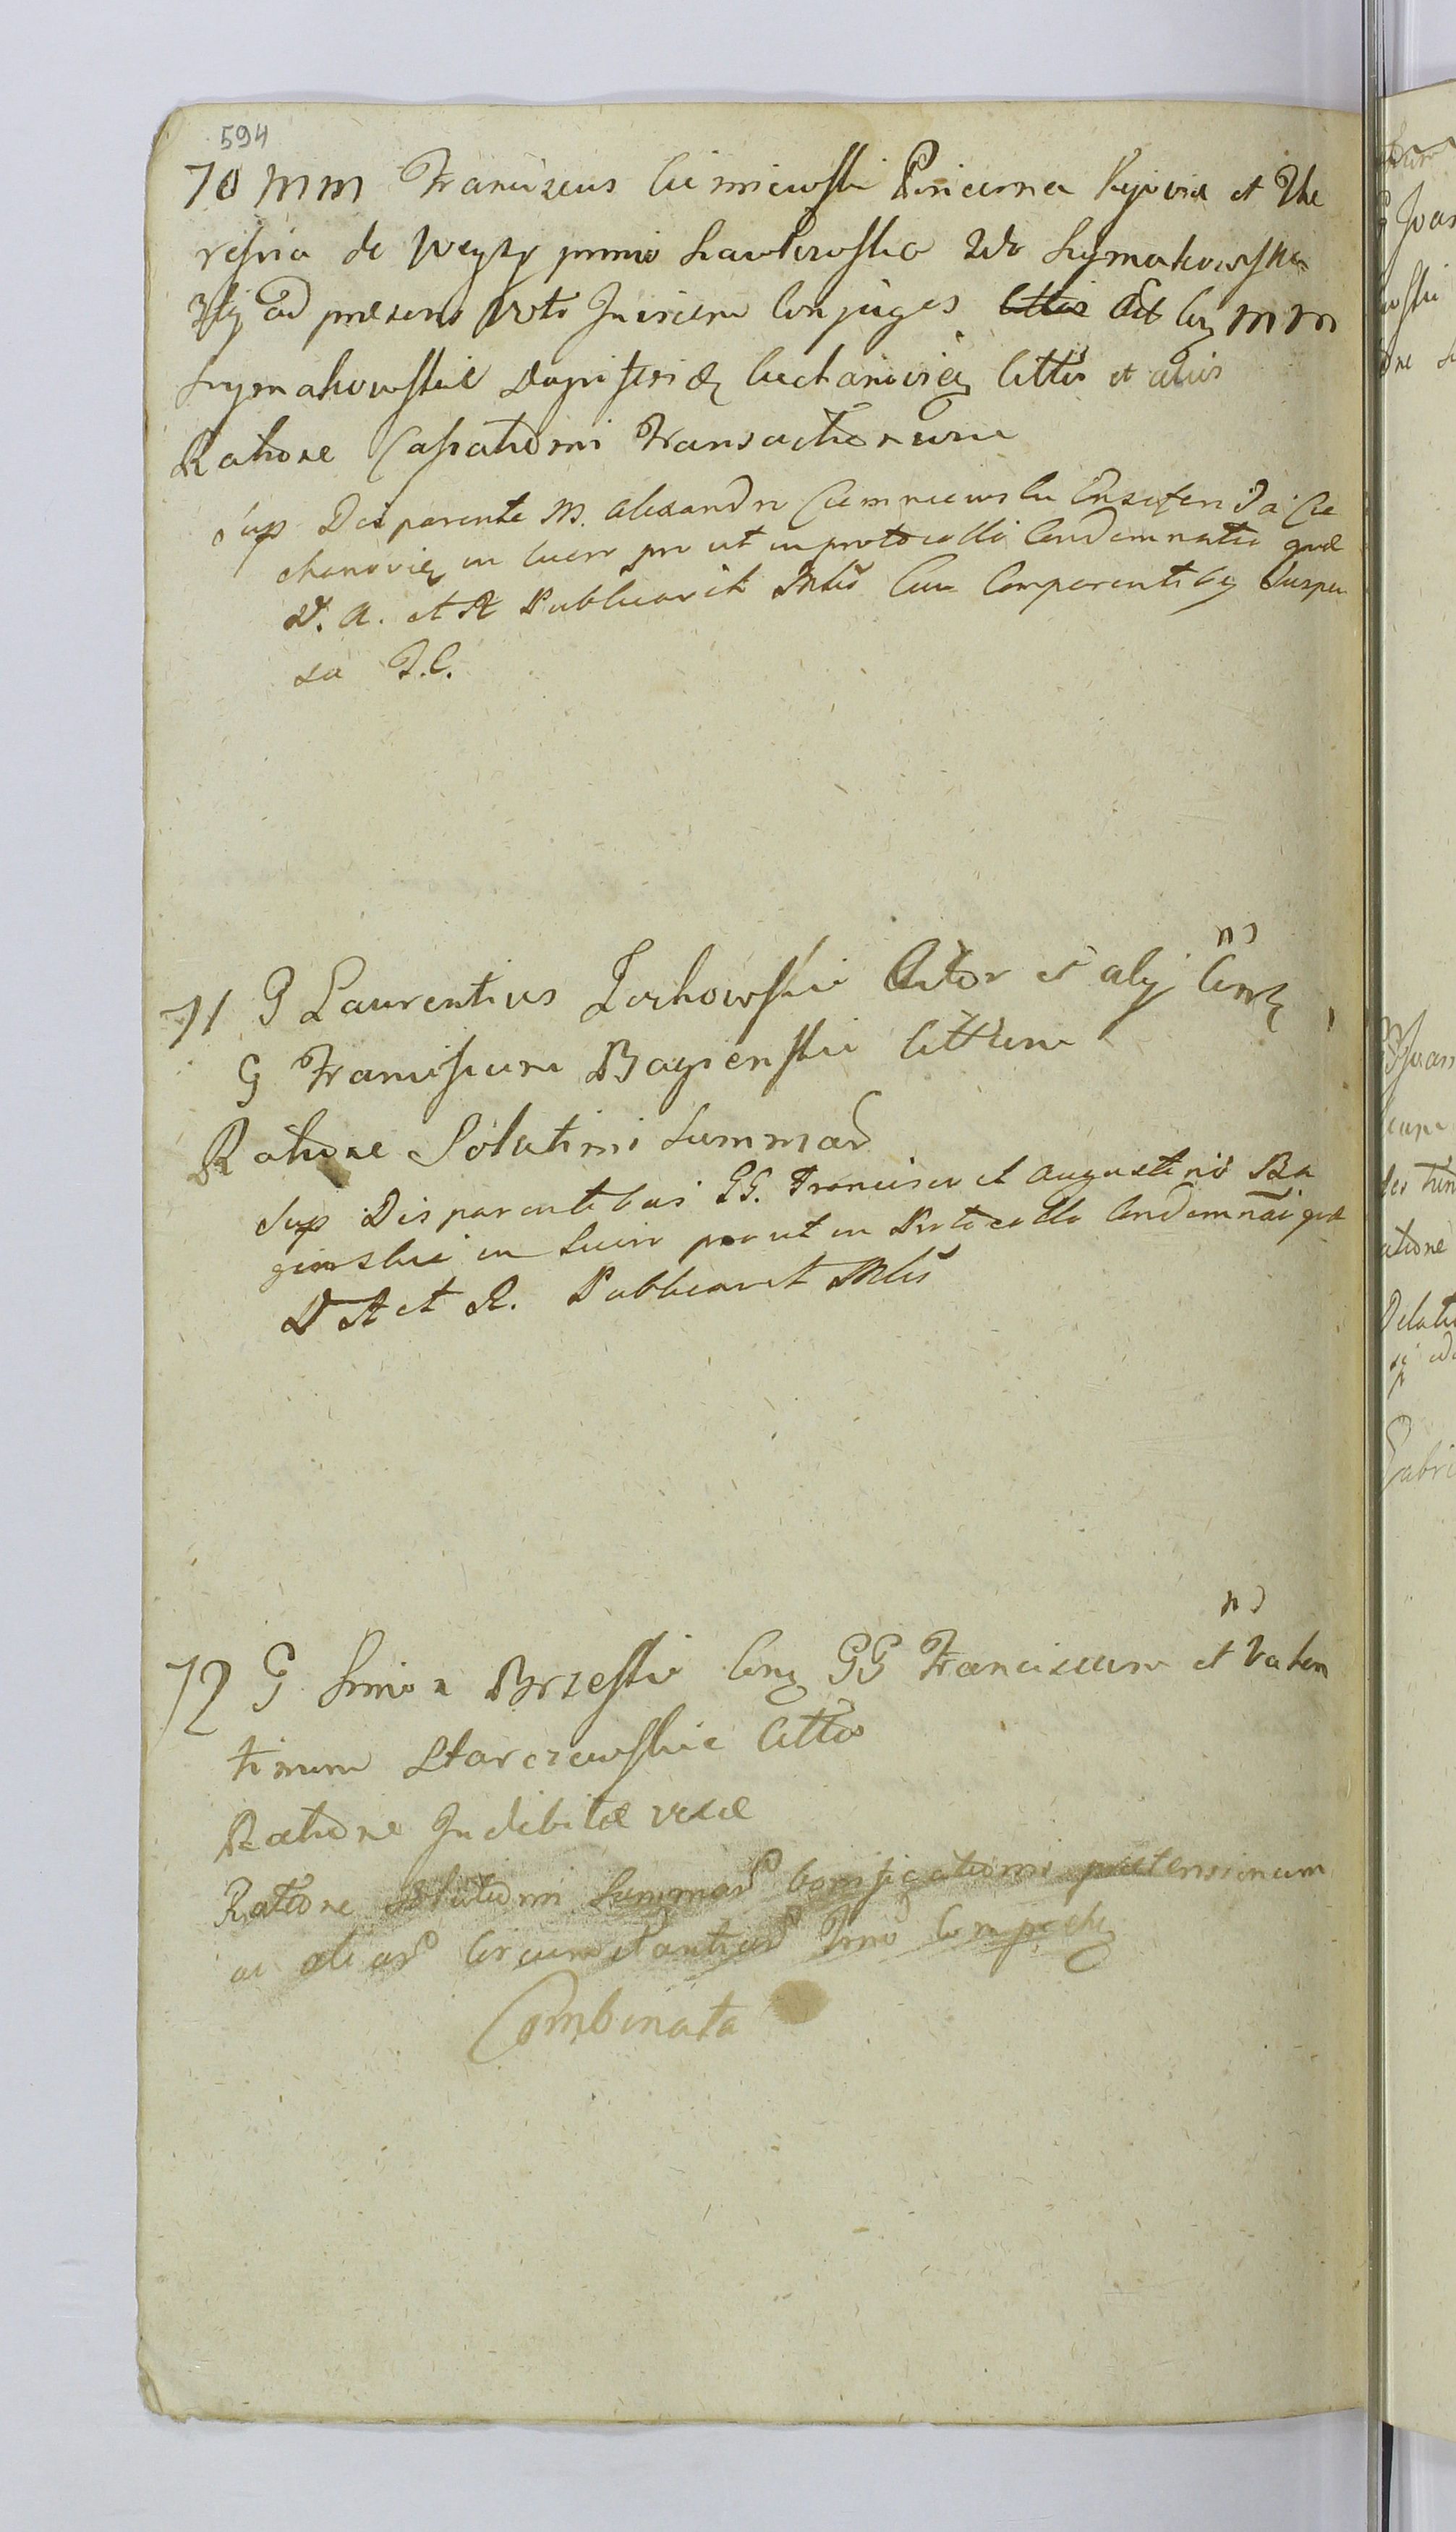 594
70 MM Franciscus Ciemniewski Pincerna Kijoviæ et The
resia de Weyzy primo Sawkowska 2do Szymakowska
3tij ad præsens Voto Invicem Conjuges Cittos Act Con MM
Szymakowskie Dapiferidę Ciechanovieñ Cittos et alios
Ratione Cassationis Transactionum
Sup Disparente M. Alexandro Ciemniewski Ensiferida Cie
chanovieñ in Lucro pro ut in protocollo Condemnatio quæ
D. A. et R Publicavit Mlis Cum Comparentibq Suspen
sa T. C.
71 G Laurentius Zochowski Actor et alij Contr
ns
G Franciscum Bagienski Cittum
Ratione Solutionis Summar
Sup Disparentibus GG. Francisco et Augustino Ba
gienskie in Lucro pro ut in Protocollo Condemnão quæ
D A et R. Publicavit Mlis
72 G Simon Brzeski Conq GG Franciscum et Valen
ns
tinum Starczewskie Citto
Ratione Indebitæ vexæ
Ratione Solutionis Summar bonificationis prætensionum
ac aliar Circumstantiar Trno Compoch
Combinata